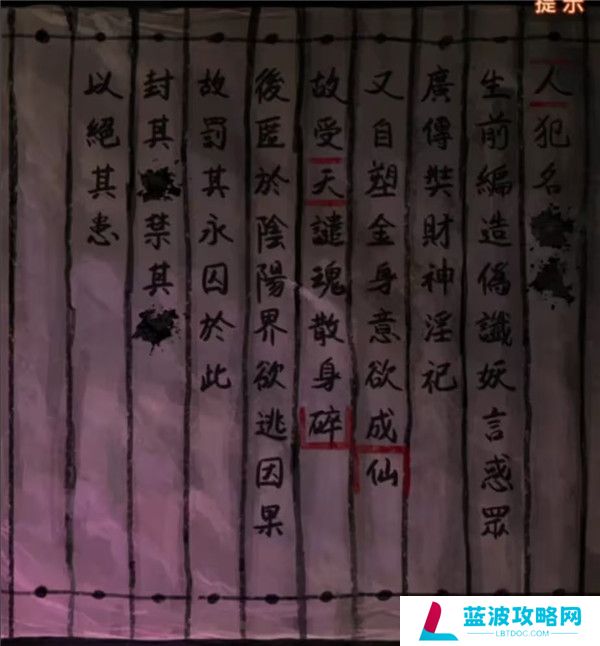 提示
人犯名
生前編造偽讖妖言惑眾
廣傳奘財神淫祀
又自塑金身意欲成仙
故受天譴魂散身碎
後匿於陰陽界欲逃因果
故罰其永囚於此
封其 禁其
以絕其患
蓝波攻略网
LBTDOC.COM